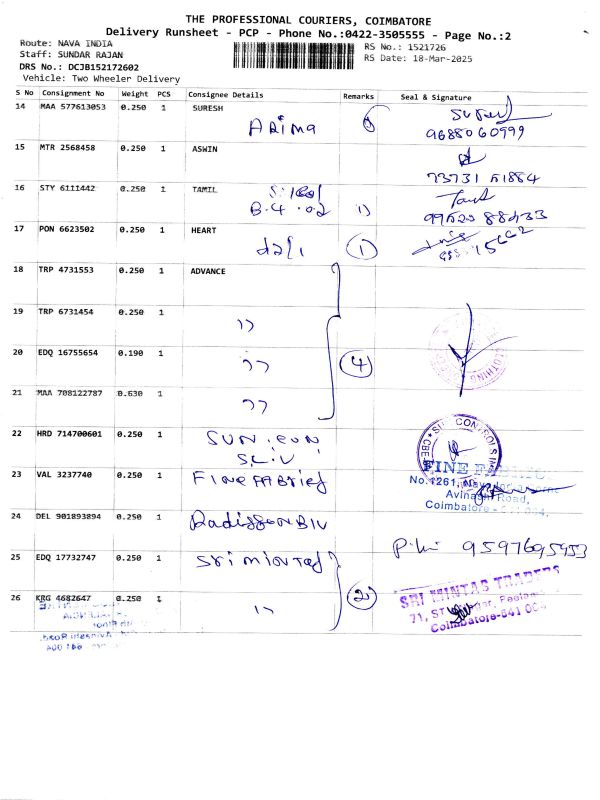 THE PROFESSIONAL COURIERS, COIMBATORE
Delivery Runsheet - PCP - Phone No.:0422-3505555 - Page No.:2
Route: NAVA INDIA
Staff: SUNDAR RAJAN
DRS No.: DCJB152172602
Vehicle: Two Wheeler Delivery
RS No.: 1521726
RS Date: 18-Mar-2025
S No Consignment No Weight PCS Consignee Details Remarks Seal & Signature
14 MAA 577613053 0.250 1 SURESH
ARima
9688060999
15 MTR 2568458 0.250 1 ASWIN
16 STY 6111442 0.250 1 TAMIL
B.4
17 PON 6623502 0.250 1 HEART
dali (1)
18 TRP 4731553 0.250 1 ADVANCE
19 TRP 6731454 0.250 1
"
20 EDQ 16755654 0.190 1
" (4)
21 MAA 708122787 0.630 1
"
22 HRD 714700601 0.250 1
SUN
23 VAL 3237740 0.250 1
Fine FABrief
FINE
No.1261,
Avinashi Road,
Coimbatore
24 DEL 901893894 0.250 1
RadissonBLU
25 EDQ 17732747 0.250 1
Sri Mintas
Ph: 9597695953
26 KRG 4682647 0.250 1
" (2)
SRI MINTAS TRADERS
71, ST
Coimbatore-641